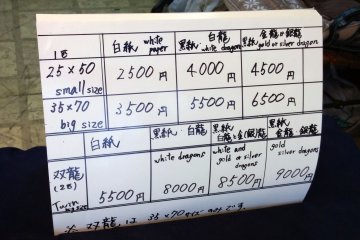 白紙 white paper 黒紙 白龍 white dragons 黒紙 金龍or銀龍 gold or silver dragons
1匹
25×50 small size 2500円 4000円 4500円
35×70 big size 3500円 5500円 6500円
白紙 黒紙 白龍 黒紙 白龍と金(銀)龍 黒紙 金龍・銀龍
双龍 (2匹) Twin big size 5500円 white dragons 8000円 white and gold or silver dragons 8500円 gold silver dragons 9000円
※ 双龍は 35×70サイズのみです